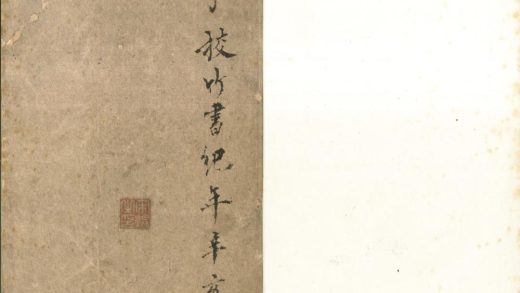 校竹書紀年辛亥